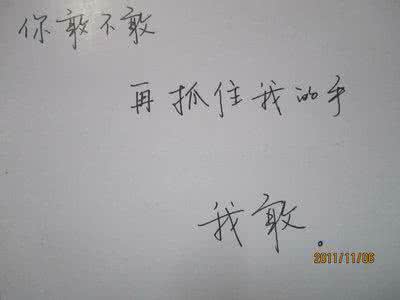 你敢不敢
再抓住我的手
我敢。
2011/11/06